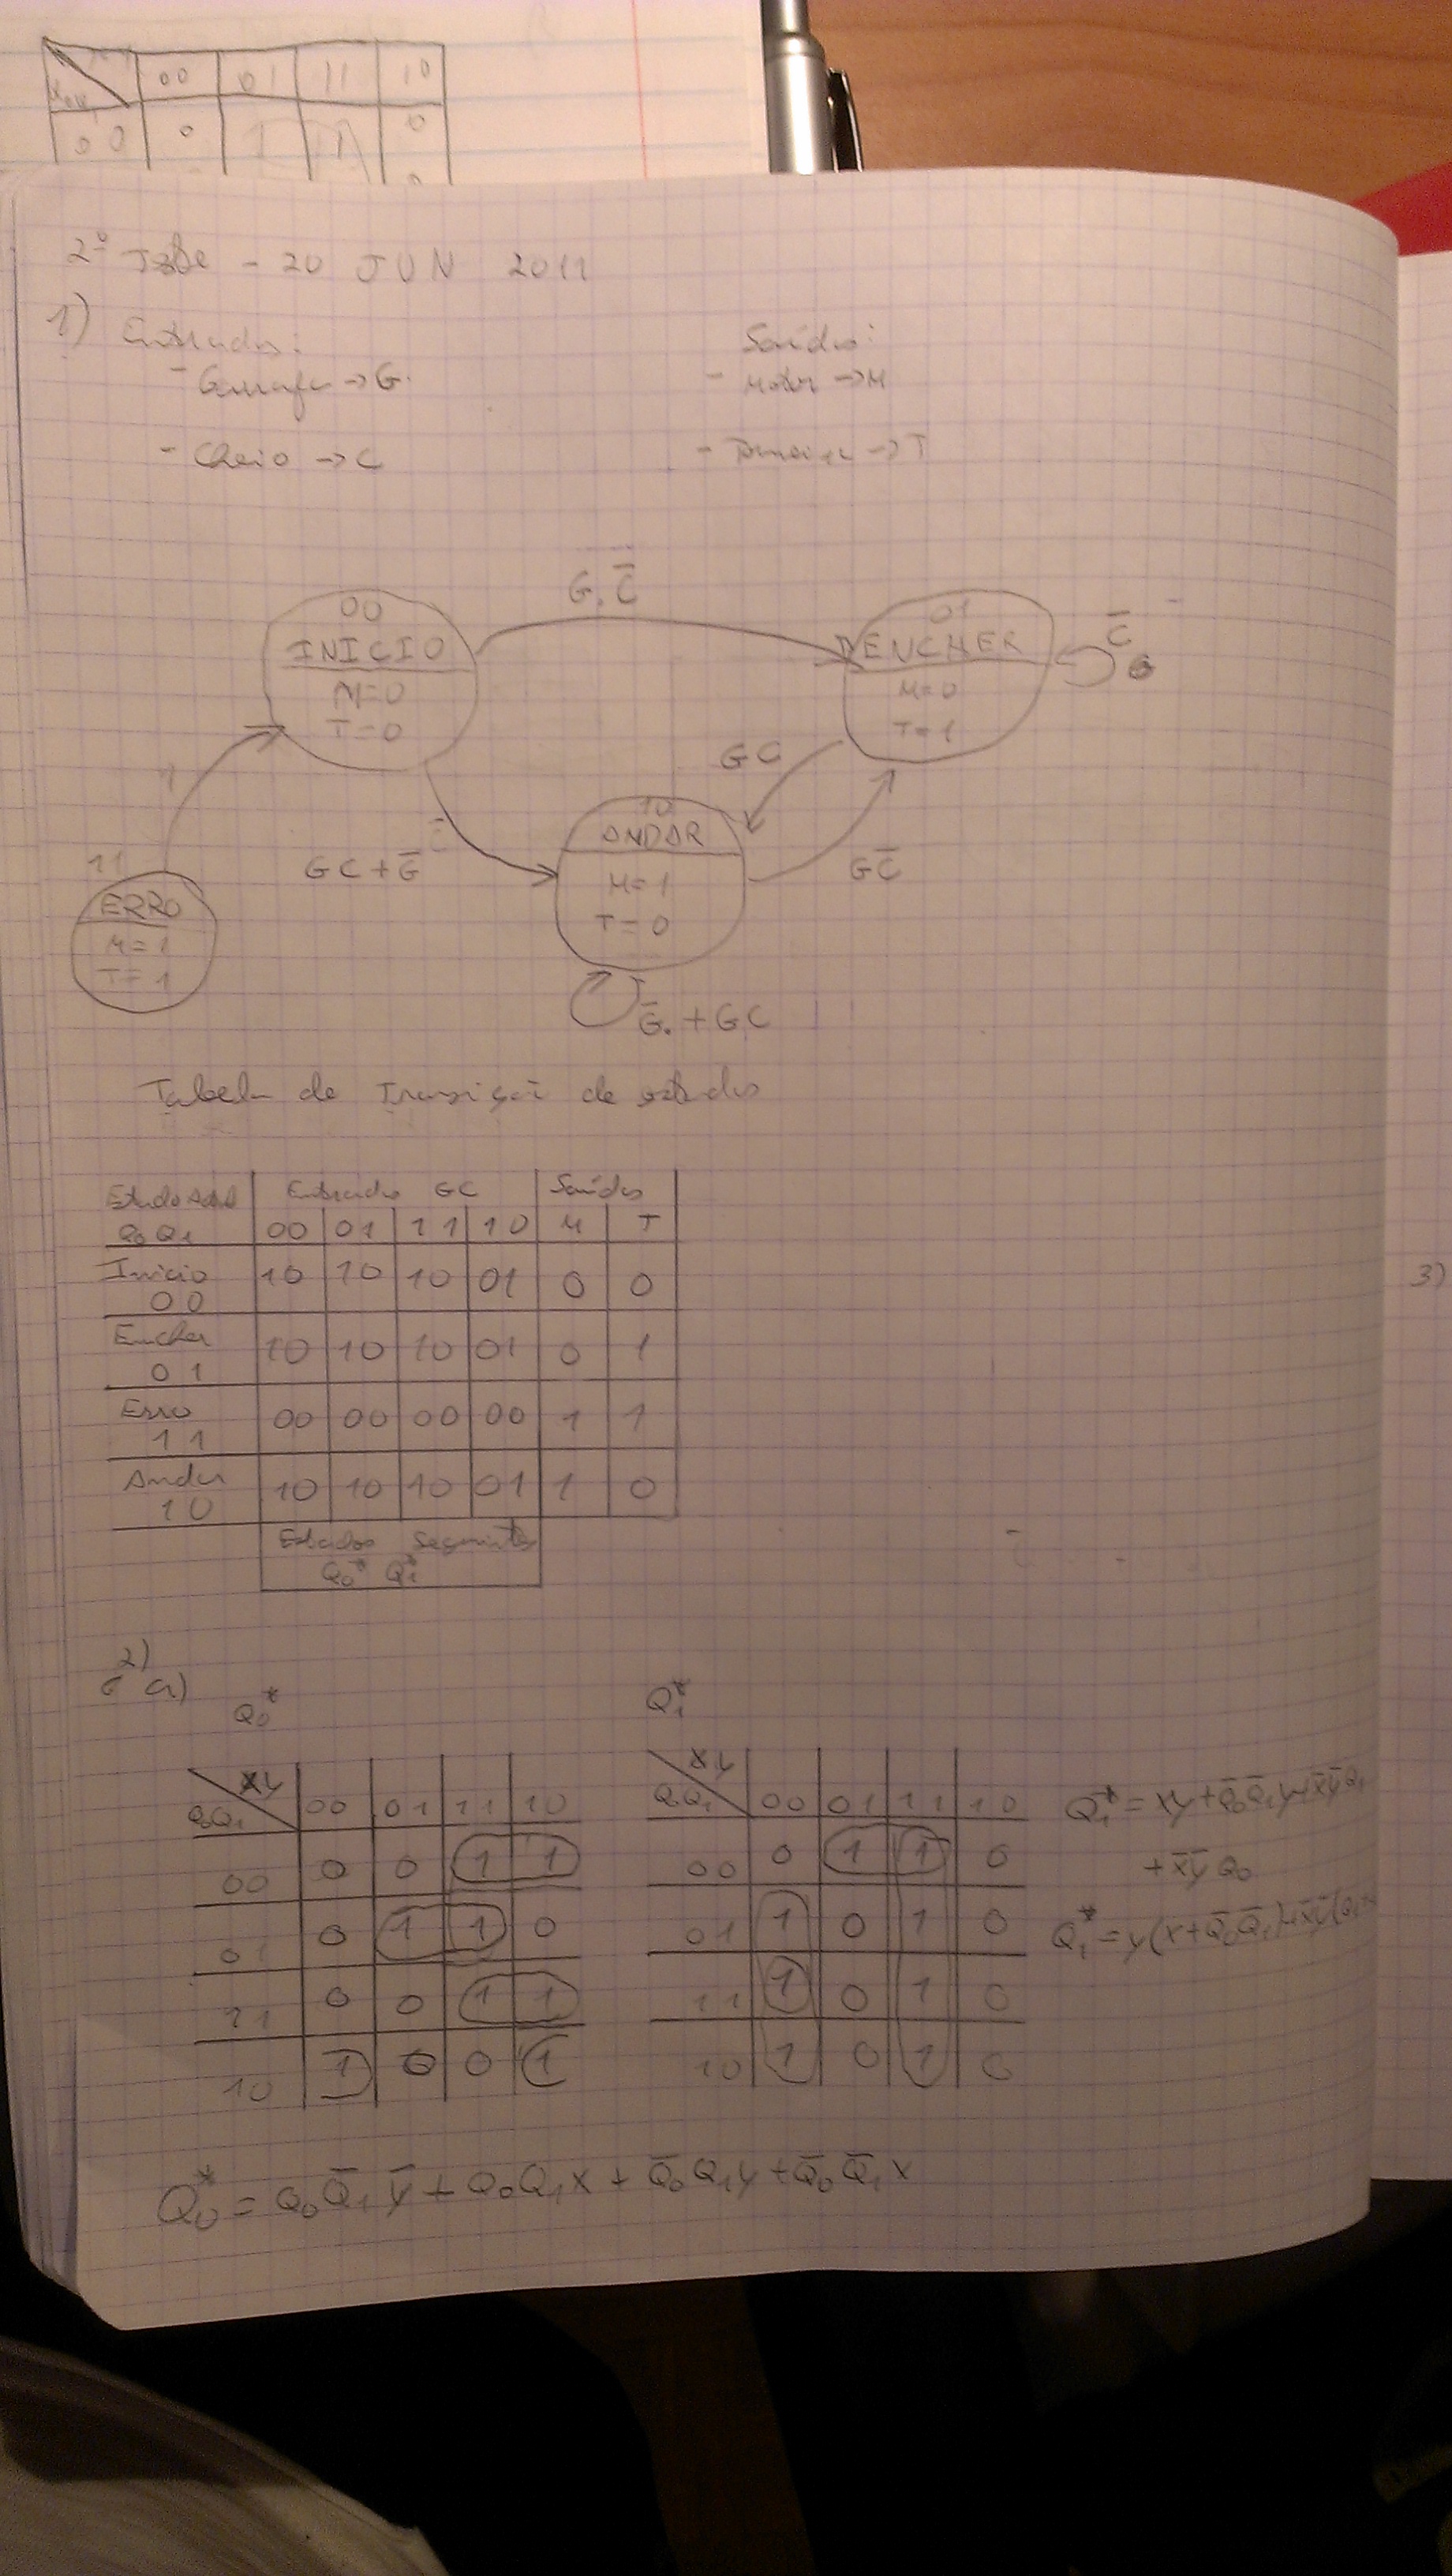 00 01 11 10
00 0 1 1 0
2º Teste - 20 JUN 2011
1) Entradas: Saídas:
- Garrafa → G - Motor → M
- Cheio → C - Torneira → T
G.C̅
00
INICIO
M=0
T=0
01
ENCHER
M=0
T=1
C̅
GC
1
GC+G̅
10
ANDAR
M=1
T=0
GC̅
11
ERRO
M=1
T=1
G̅.+GC
Tabela de Transição de estados
Estado Actual Entradas GC Saídas
Q0Q1 00 01 11 10 M T
Inicio 00 10 10 10 01 0 0
Encher 01 10 10 10 01 0 1
Erro 11 00 00 00 00 1 1
Andar 10 10 10 10 01 1 0
Estados Seguintes
Q0* Q1*
2)
a)
Q0*
XY
Q0Q1 00 01 11 10
00 0 0 1 1
01 0 1 1 0
11 0 0 1 1
10 1 0 0 1
Q1*
XY
Q0Q1 00 01 11 10
00 0 1 1 0
01 1 0 1 0
11 1 0 1 0
10 1 0 1 0
Q1* = xy + Q̅0Q̅1y + x̅y̅Q1
+ x̅y̅Q0
Q1* = y(x+Q̅0Q̅1)+x̅y̅(Q1+
Q0* = Q0Q̅1y̅ + Q0Q1x + Q̅0Q1y + Q̅0Q̅1x
3)